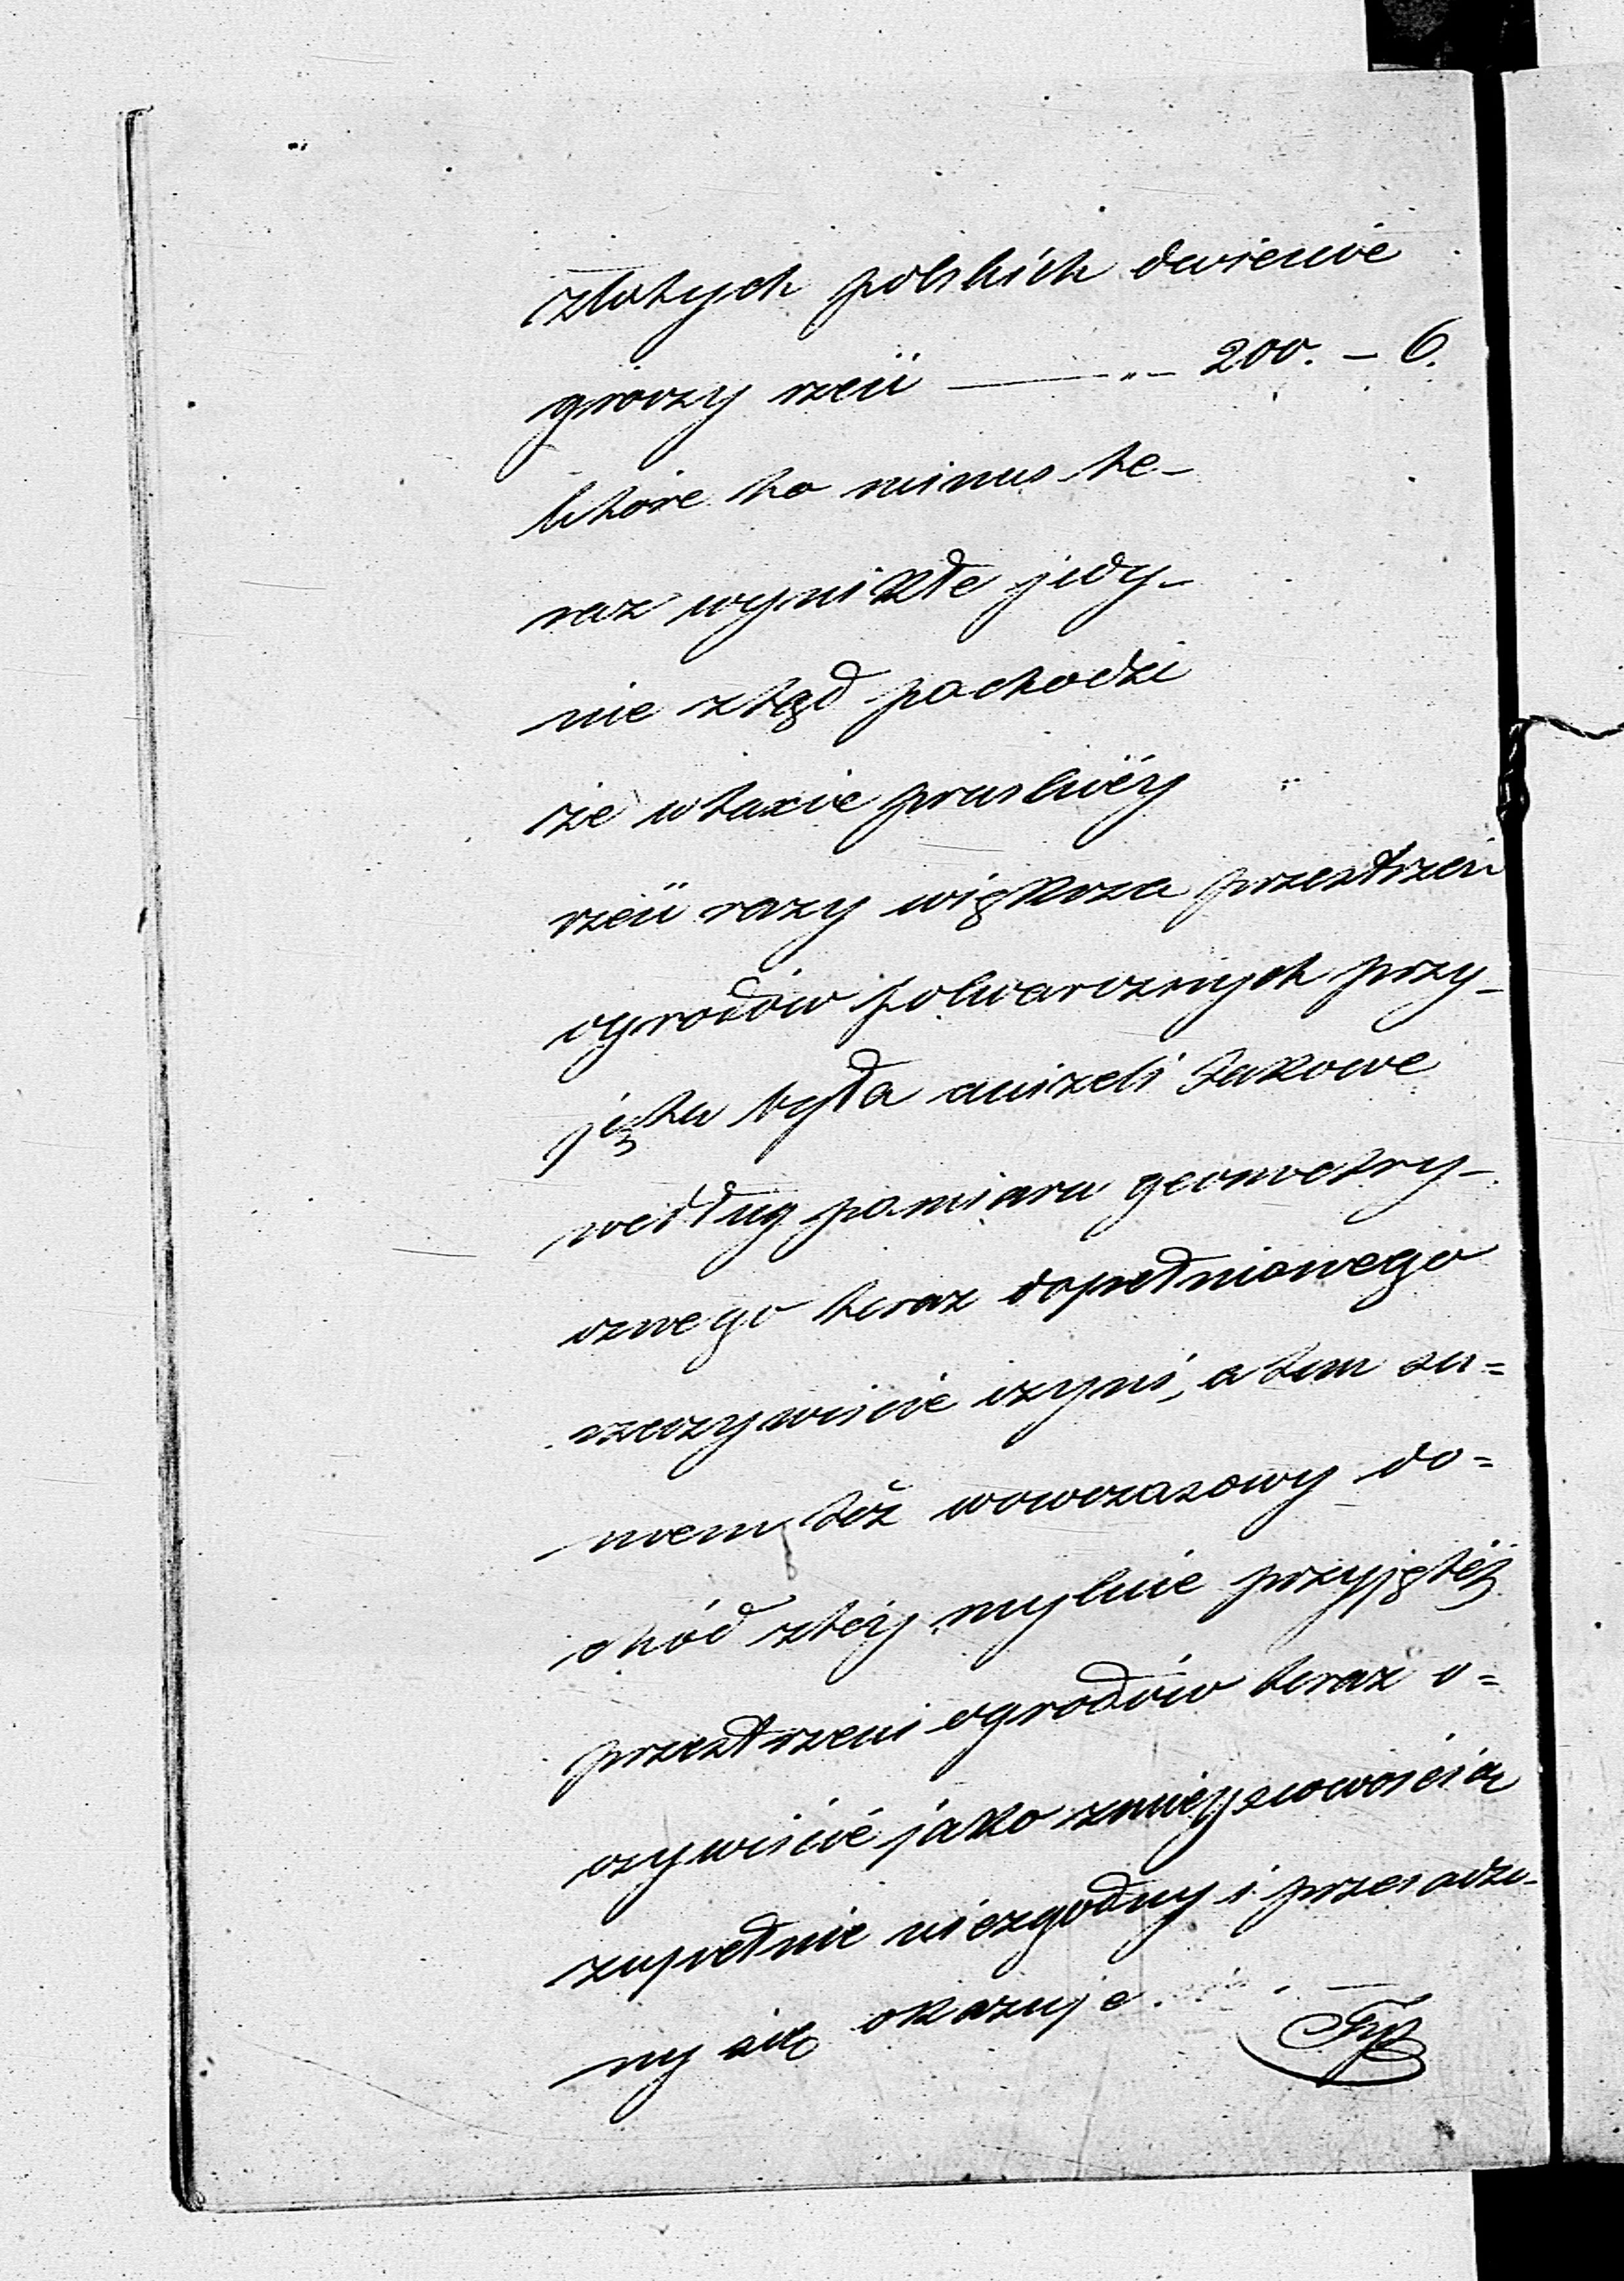 złotych polskich dwieście
groszy sześć — „ — 200. — 6.
które to minus te-
raz wynikłe jedy-
nie ztąd pochodzi
że w taxie pruskiéy
sześć razy większa przestrzeń
ogrodów folwarcznych przy-
jęta była aniżeli takowe
według pomiaru geometry-
cznego teraz dopełnionego
rzeczywiście czyni, a tem sa=
mem też wowczasowy do=
chód ztéy mylnie przyjętéj
przestrzeni ogrodów teraz o=
czywiście jako zmieyscowością
zupełnie niezgodny i przesadzo-
ny się okazuje.